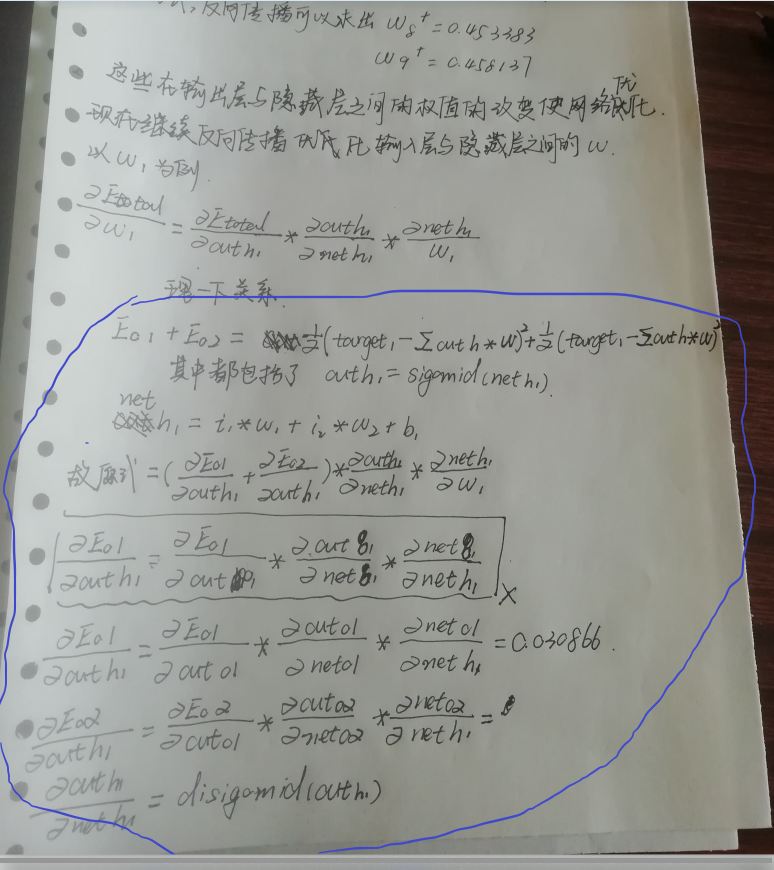 反向传播可以求出 w₈⁺ = 0.453383
w₉⁺ = 0.458137
这些在输出层与隐藏层之间的权值的改变使网络优化.
现在继续反向传播优化输入层与隐藏层之间的 w.
以 w₁ 为例.
∂Etotal/∂w₁ = ∂Etotal/∂outh₁ * ∂outh₁/∂neth₁ * ∂neth₁/w₁
理一下关系.
Eo1 + Eo2 = ½(target₁ - Σouth*w)² + ½(target₁ - Σouth*w)²
其中都包括了 outh₁ = sigomid(neth₁).
net h₁ = i₁*w₁ + i₂*w₂ + b₁
故原式 = (∂Eo1/∂outh₁ + ∂Eo2/∂outh₁) * ∂outh₁/∂neth₁ * ∂neth₁/∂w₁
∂Eo1/∂outh₁ = ∂Eo1/∂out * ∂out/∂net * ∂net/∂neth₁ ×
∂Eo1/∂outh₁ = ∂Eo1/∂outo1 * ∂outo1/∂neto1 * ∂neto1/∂neth₁ = 0.030866.
∂Eo2/∂outh₁ = ∂Eo2/∂outo1 * ∂outo2/∂neto2 * ∂neto2/∂neth₁ =
∂outh₁/∂neth₁ = disigomid(outh₁)